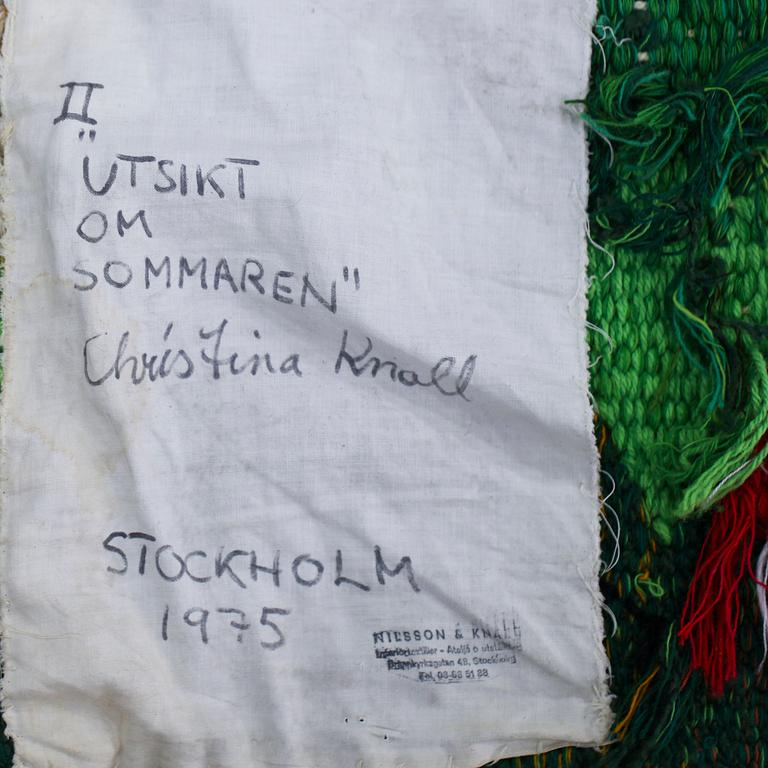 II
"UTSIKT
OM
SOMMAREN"
Christina Knall
STOCKHOLM
1975
NILSSON & KNALL
- Ateljé o
48, Stockholm
Tel. 08-68 51 88